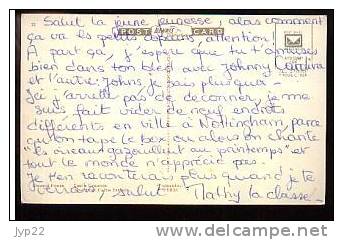 Salut la jeune jeunesse, alors comment
ça va les petits copains, attention!
POST CARD
A part ça, j'espère que tu t'amuses
bien dans ton bled avec Johnny
et l'autre Johns je sais plus quoi
Ici j'arrête pas de déconner, je me
suis fait vider de neuf endroits
différents en ville à Nottingham, parce
qu'on tape le box ou alors on chante
"les oiseaux gazouillent au printemps" et
tout le monde n'apprécie pas.
Je t'en raconterais plus quand je te
verrais, salut Mathy la classe.
jyp22
www.delcampe.net